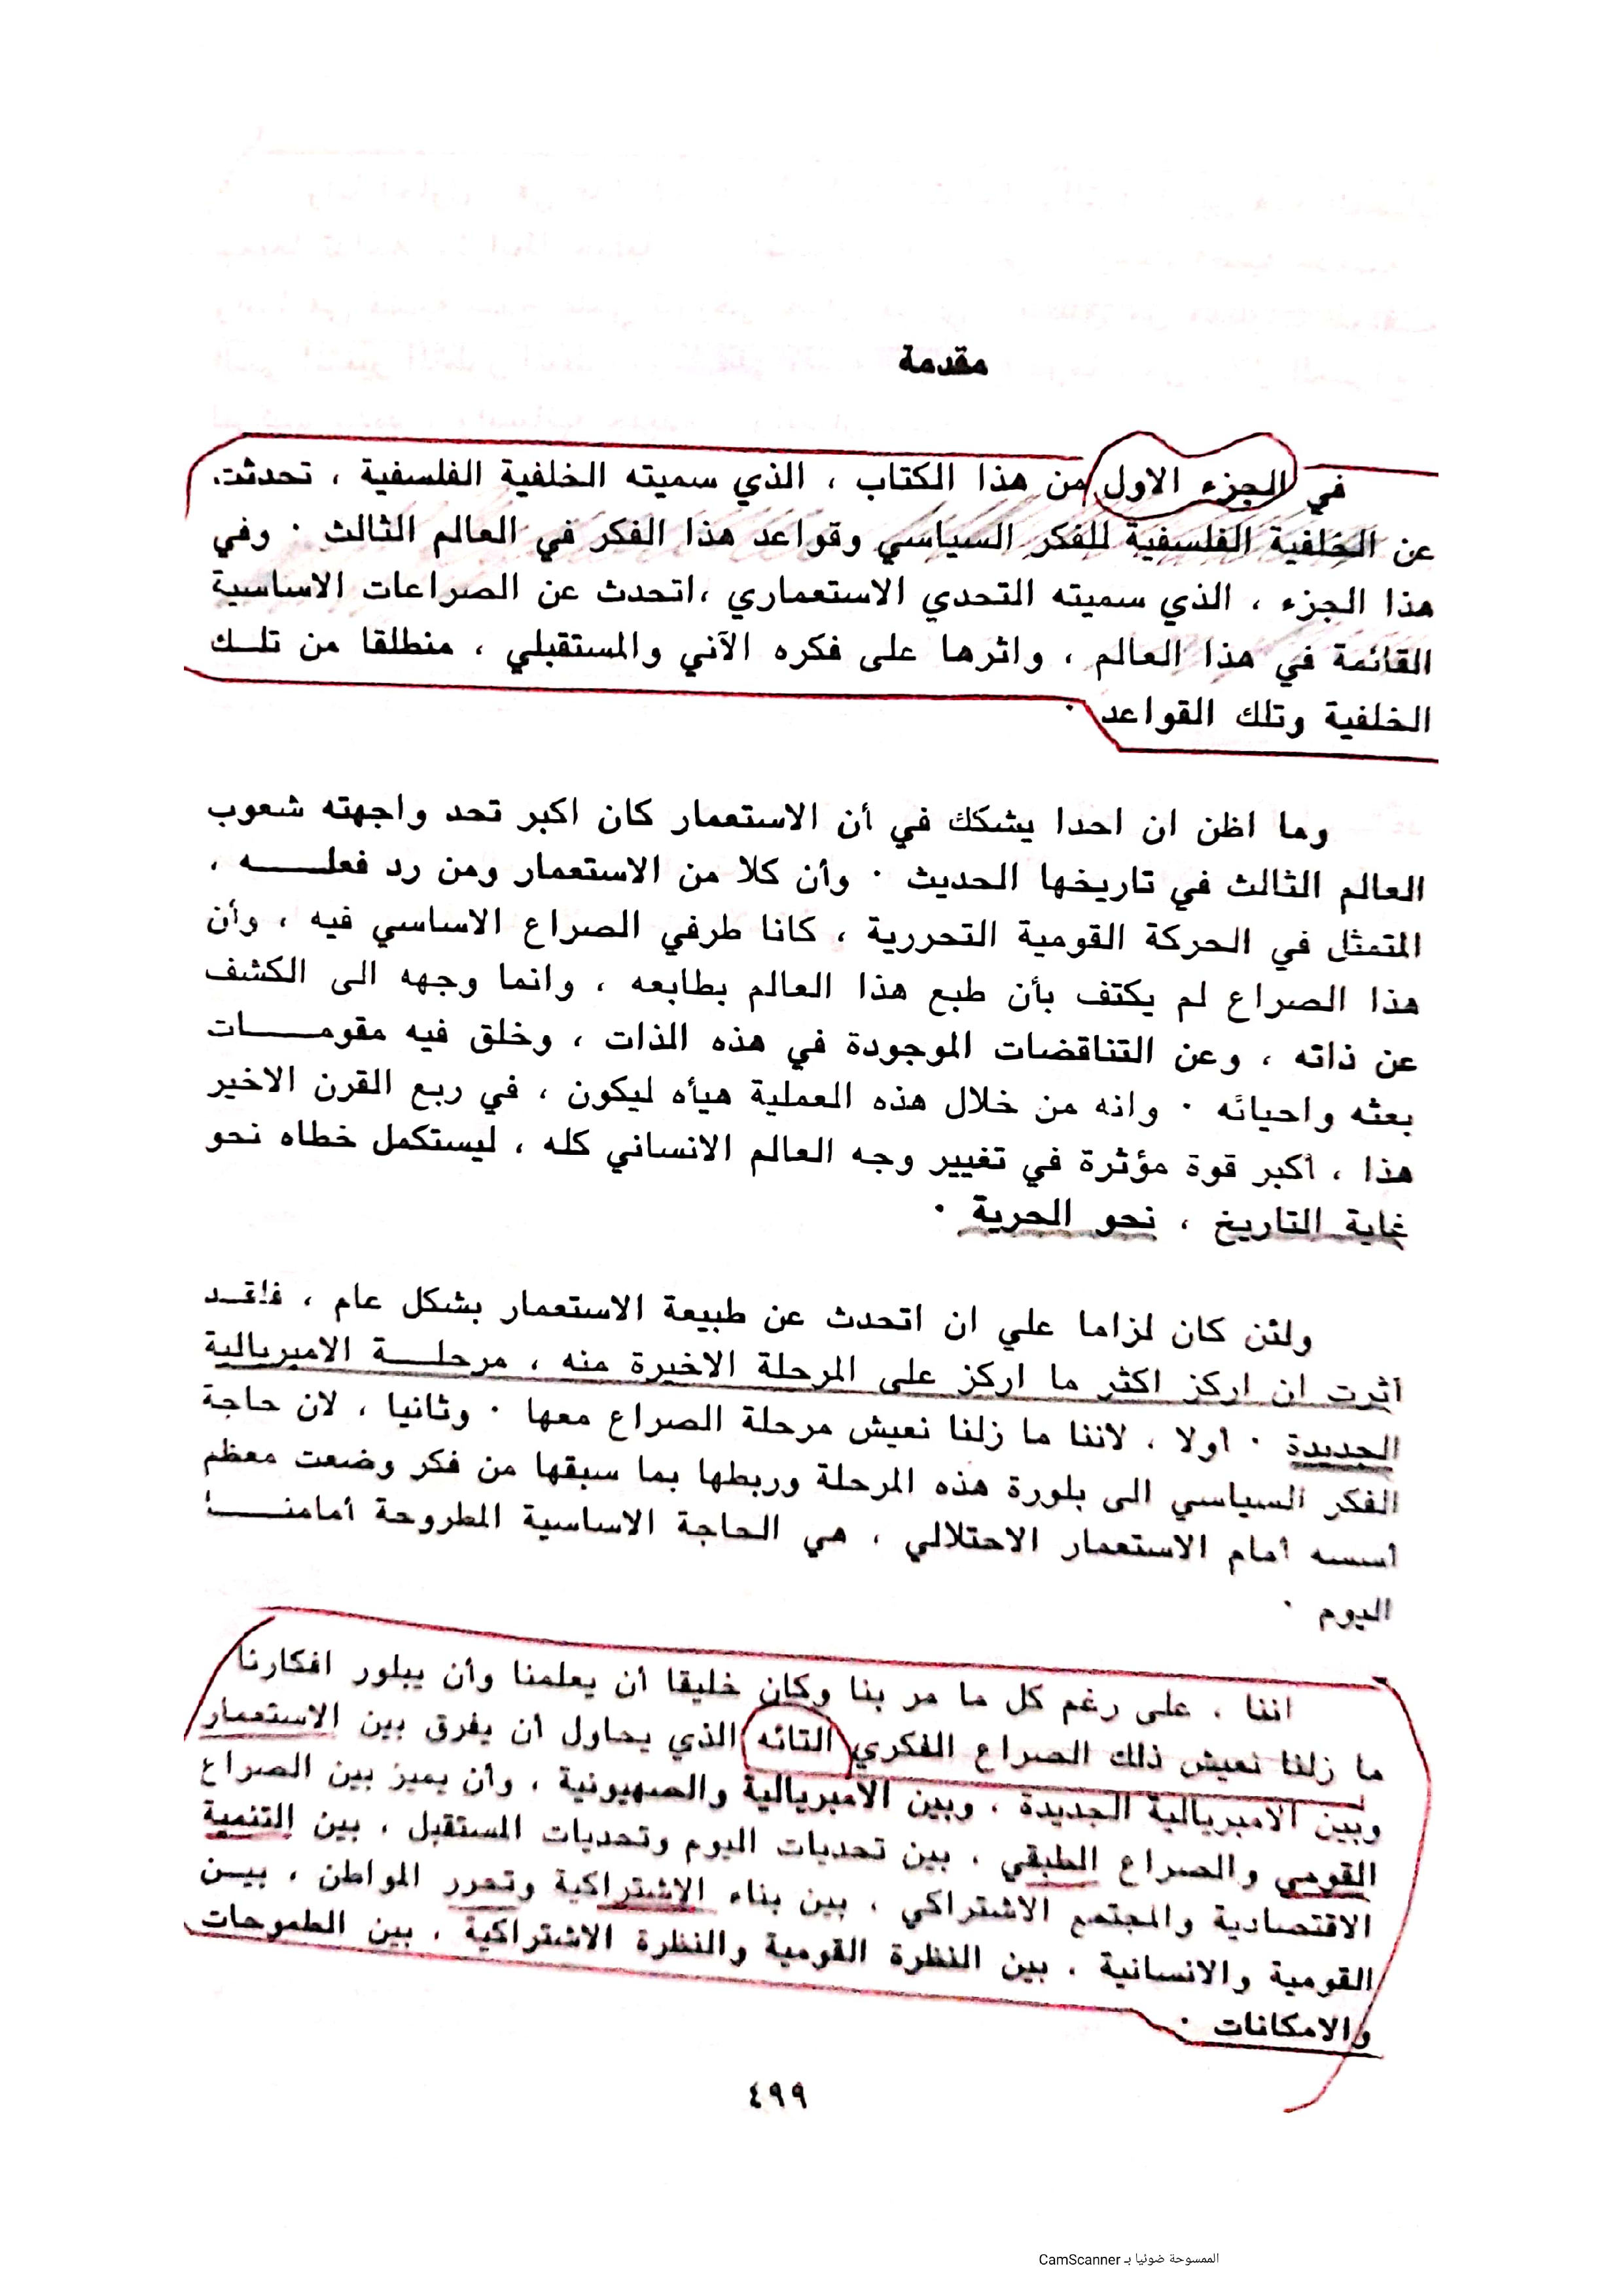 مقدمة
في الجزء الاول من هذا الكتاب ، الذي سميته الخلفية الفلسفية ، تحدثت
عن الخلفية الفلسفية للفكر السياسي وقواعد هذا الفكر في العالم الثالث . وفي
هذا الجزء ، الذي سميته التحدي الاستعماري ،اتحدث عن الصراعات الاساسية
القائمة في هذا العالم ، واثرها على فكره الآني والمستقبلي ، منطلقا من تلـك
الخلفية وتلك القواعد .
وما اظن ان احدا يشكك في أن الاستعمار كان اكبر تحد واجهته شعوب
العالم الثالث في تاريخها الحديث . وأن كلا من الاستعمار ومن رد فعلـــه ،
المتمثل في الحركة القومية التحررية ، كانا طرفي الصراع الاساسي فيه ، وأن
هذا الصراع لم يكتف بأن طبع هذا العالم بطابعه ، وانما وجهه الى الكشف
عن ذاته ، وعن التناقضات الموجودة في هذه الذات ، وخلق فيه مقومـــات
بعثه واحيائه . وانه من خلال هذه العملية هيأه ليكون ، في ربع القرن الاخير
هذا ، أكبر قوة مؤثرة في تغيير وجه العالم الانساني كله ، ليستكمل خطاه نحو
غاية التاريخ ، نحو الحرية .
ولئن كان لزاما علي ان اتحدث عن طبيعة الاستعمار بشكل عام ، فلقـد
آثرت ان اركز اكثر ما اركز على المرحلة الاخيرة منه ، مرحلـــة الامبريالية
الجديدة . أولا ، لاننا ما زلنا نعيش مرحلة الصراع معها . وثانيا ، لان حاجة
الفكر السياسي الى بلورة هذه المرحلة وربطها بما سبقها من فكر وضعت معظم
أسسه أمام الاستعمار الاحتلالي ، هي الحاجة الاساسية المطروحة أمامنـــا
اليوم .
اننا ، على رغم كل ما مر بنا وكان خليقا أن يعلمنا وأن يبلور افكارنا
ما زلنا نعيش ذلك الصراع الفكري التائه الذي يحاول أن يفرق بين الاستعمار
وبين الامبريالية الجديدة ، وبين الامبريالية والصهيونية ، وأن يميز بين الصراع
القومي والصراع الطبقي ، بين تحديات اليوم وتحديات المستقبل ، بين التنمية
الاقتصادية والمجتمع الاشتراكي ، بين بناء الاشتراكية وتحرر المواطن ، بيـن
القومية والانسانية ، بين النظرة القومية والنظرة الاشتراكية ، بين الطموحات
والامكانات .
٤٩٩
الممسوحة ضوئيا بـ CamScanner